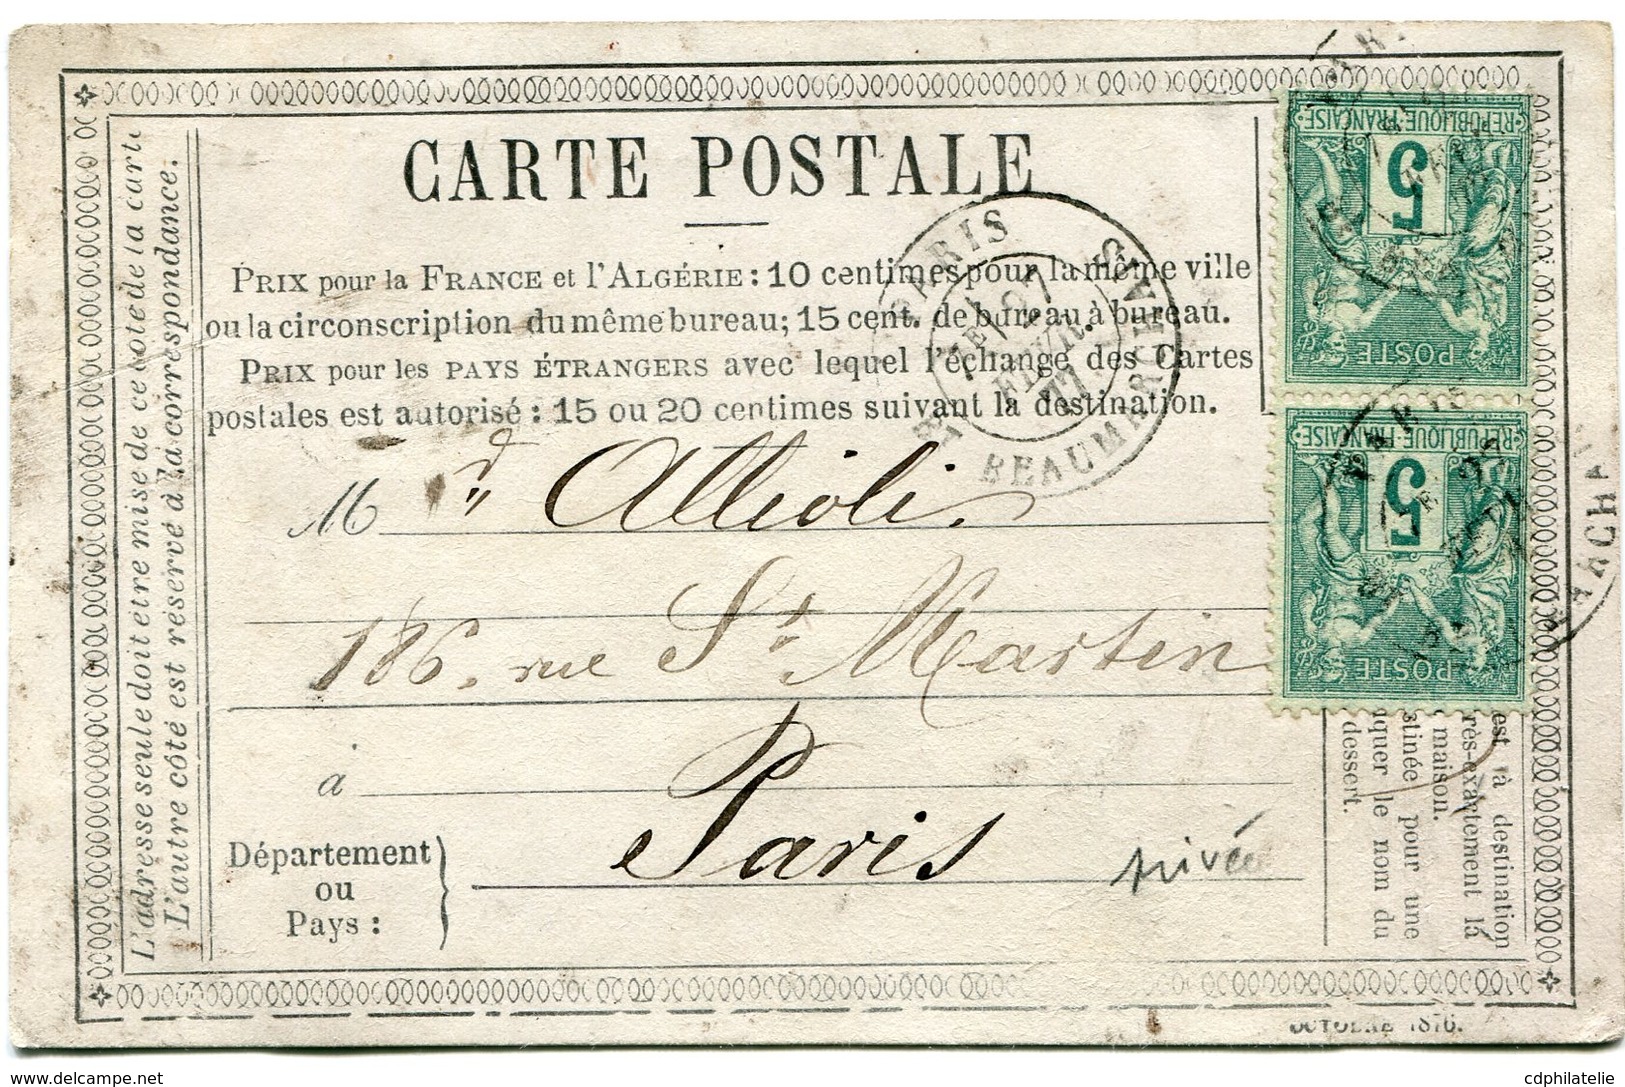 CARTE POSTALE
PRIX pour la FRANCE et l'ALGÉRIE : 10 centimes pour la même ville
ou la circonscription du même bureau; 15 cent. de bureau à bureau.
PRIX pour les PAYS ÉTRANGERS avec lequel l'échange des Cartes
postales est autorisé : 15 ou 20 centimes suivant la destination.
L'adresse seule doit être mise de ce côté de la carte
L'autre côté est réservé à la correspondance.
PARIS
27
FEVR
77
BEAUMARCHAIS
REPUBLIQUE FRANÇAISE
5
POSTE
REPUBLIQUE FRANÇAISE
5
POSTE
PARIS
27
MARCHAI
Md Allioli.
186. rue St Martin
à Paris
Département
ou
Pays :
privée
est là destination
rès-exactement là
maison.
stinée pour une
quer le nom du
dessert.
OCTOBRE 1876.
delcampe.net
cdphilatelie